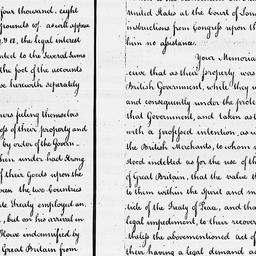 four thousand, eight
grounds of. as will appear
the legal interest
nted to the Several sums
the foot of the accounts
ve hereunto separately
mers feeling themselves
ofs of their property and
by order of the Govern
then under had Strong
of their Goods upon the
ween the two Countries
te Treaty employed an
, but on his arrival in
Howe indemnified by
Great Britain from
United States at the Court of Lon
instructions from Congress upon th
him no assistance.
Your Memoria
ceive that as their property was
British Government, while they w
and consequently under the prote
that Government, and taken as t
with a professed intention, as w
the British Merchants, to whom s
stood indebted as for the use of th
of Great Britain, that the value th
to them within the spirit and m
title of the Treaty of Peace, and tha
legal impediment, to their recover
thstg the abovementioned act of
their having a legal demand ag